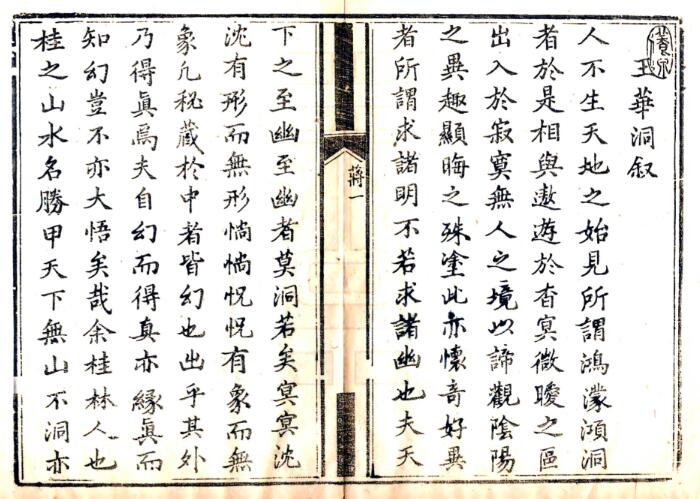 玉華洞叙
人不生天地之始見所謂鴻濛澒洞
者於是相與遨遊於杳冥微曖之區
出入於寂寞無人之境以諦觀陰陽
之異趣顯晦之殊塗此亦懷奇好異
者所謂求諸明不若求諸幽也夫天
蔣一
下之至幽至幽者莫洞若矣冥冥沈
沈有形而無形惝惝怳怳有象而無
象凢秘藏於中者皆幻也出乎其外
乃得眞焉夫自幻而得真亦緣眞而
知幻豈不亦大悟矣哉余桂林人也
桂之山水名勝甲天下無山不洞亦